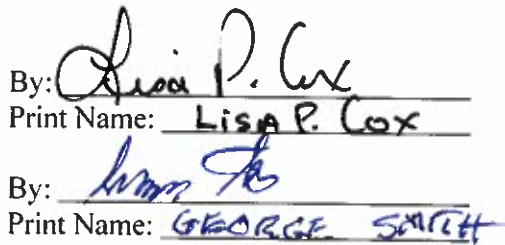 By: Lisa P. Cox
Print Name: LISA P. COX
By:
Print Name: GEORGE SMITH